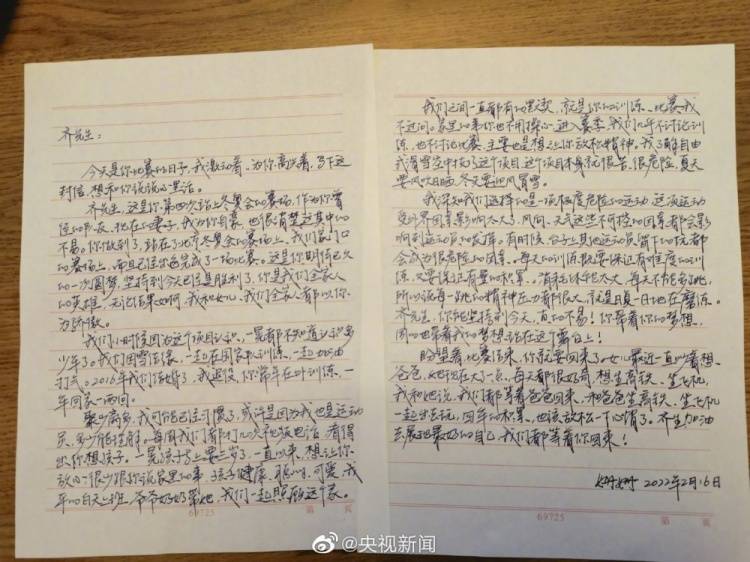 齐先生：
今天是你比赛的日子，我激动着，为你高兴着，写下这
封信，想和你说说心里话。
齐先生，这是你第四次站上冬奥会的赛场，作为你曾
经的队友，现在的妻子，我为你自豪，也很清楚这其中的
不易。你做到了，站在了北京冬奥会的赛场上，我们家门口
的赛场上，而且已经出色完成了一场比赛。这是你期待已久
的一次圆梦，坚持到今天已经是胜利了，你是我们全家人
的英雄，无论结果如何，我和女儿，我们全家人都以你
为骄傲。
我们小时候因为这个项目认识，一晃都不知道认识多
少年了。我们因雪结缘，一起在国家队训练、一起加油
打气。2016年我们结婚了，我退役，你常年在外训练，一
年回家一两回。
聚少离多，我可能已经习惯了，或许是因为我也是运动
员，多少能理解。每周我们都打几次电话，看得
出你想孩子。一晃孩子马上要三岁了，一直以来，想让你
放心，很少跟你说家里的事，孩子健康、聪明、可爱，我
平时白天上班，爷爷奶奶带她，我们一起照顾这个家。
69725
第 页
我们之间一直都有的默契，就是你的训练、比赛我
不过问。家里的事你也不用操心，进入赛季，我们几乎不讨论训
练，也不讨论比赛，主要也是想让你放松精神。我了解自由
式滑雪空中技巧这个项目，这个项目本身就很苦，很危险，夏天
要风吹日晒，冬天要迎风冒雪。
我深知我们选择的是一项极度危险的运动，这项运动
受外界因素影响太大了，风向、天气这些不可控的因素，都会影
响到运动员的发挥。有时候，台子上其他运动员留下的坑都
会成为很危险的因素。每天的训练既要保证有难度的训
练，又要保证有量的积累。消耗体能也大，每天不能多跳，
所以说每一跳的精神压力都很大，就是日复一日地在磨练。
齐先生，你能坚持到今天，真的不易！你带着你的梦想，
同时也带着我的梦想站在这个舞台上！
盼望着比赛结束，你就要回来了。女儿最近一直叫着想
爸爸，她现在大了一点，每天都很好奇，想坐高铁、坐飞机，
我和她说，我们都等着爸爸回来，和爸爸坐高铁、坐飞机
一起出去玩，四年的积累，也该放松一下心情了。齐先生加油
去展现最好的自己，我们都等着你回来！
2022年2月16日
69725
第 页
@央视新闻